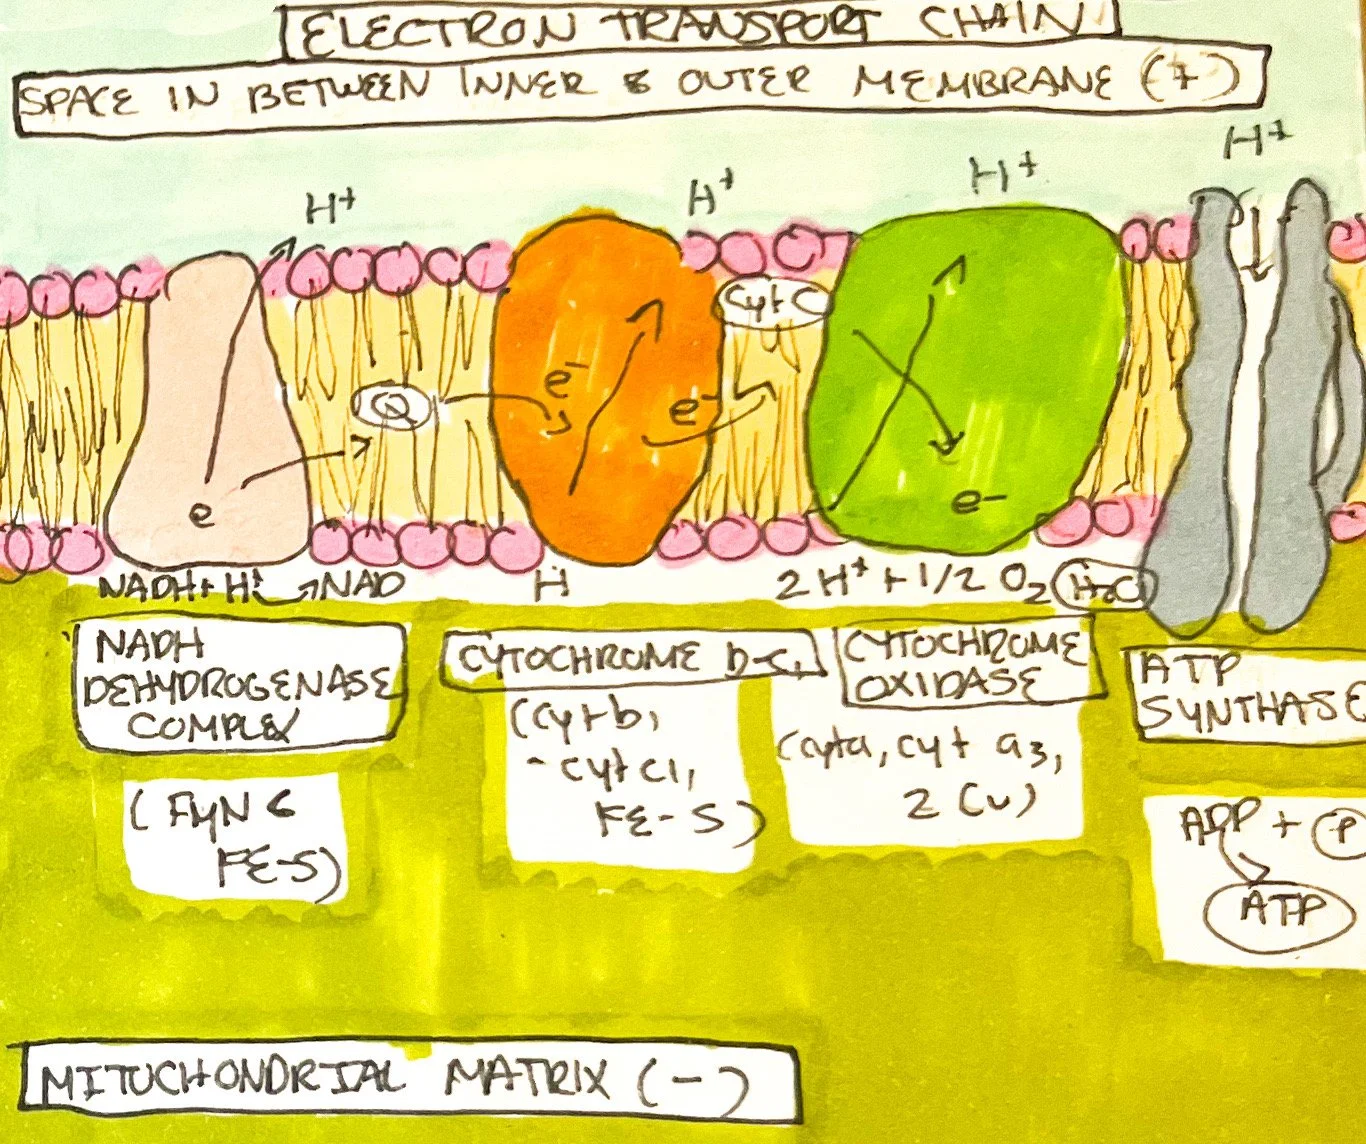 ELECTRON TRANSPORT CHAIN
SPACE IN BETWEEN INNER & OUTER MEMBRANE (+)
H+
H+
H+
H+
Cyt C
Q
e-
e-
e
e-
NADH + H+ → NAD
H
2 H+ + 1/2 O2
NADH
DEHYDROGENASE
COMPLEX
(FMN &
FE-S)
CYTOCHROME b-c1
(cyt b,
- cyt c1,
FE-S)
CYTOCHROME
OXIDASE
(cyta, cyt a3,
2 Cu)
ATP
SYNTHASE
ADP + P
ATP
MITUCHONDRIAL MATRIX (-)